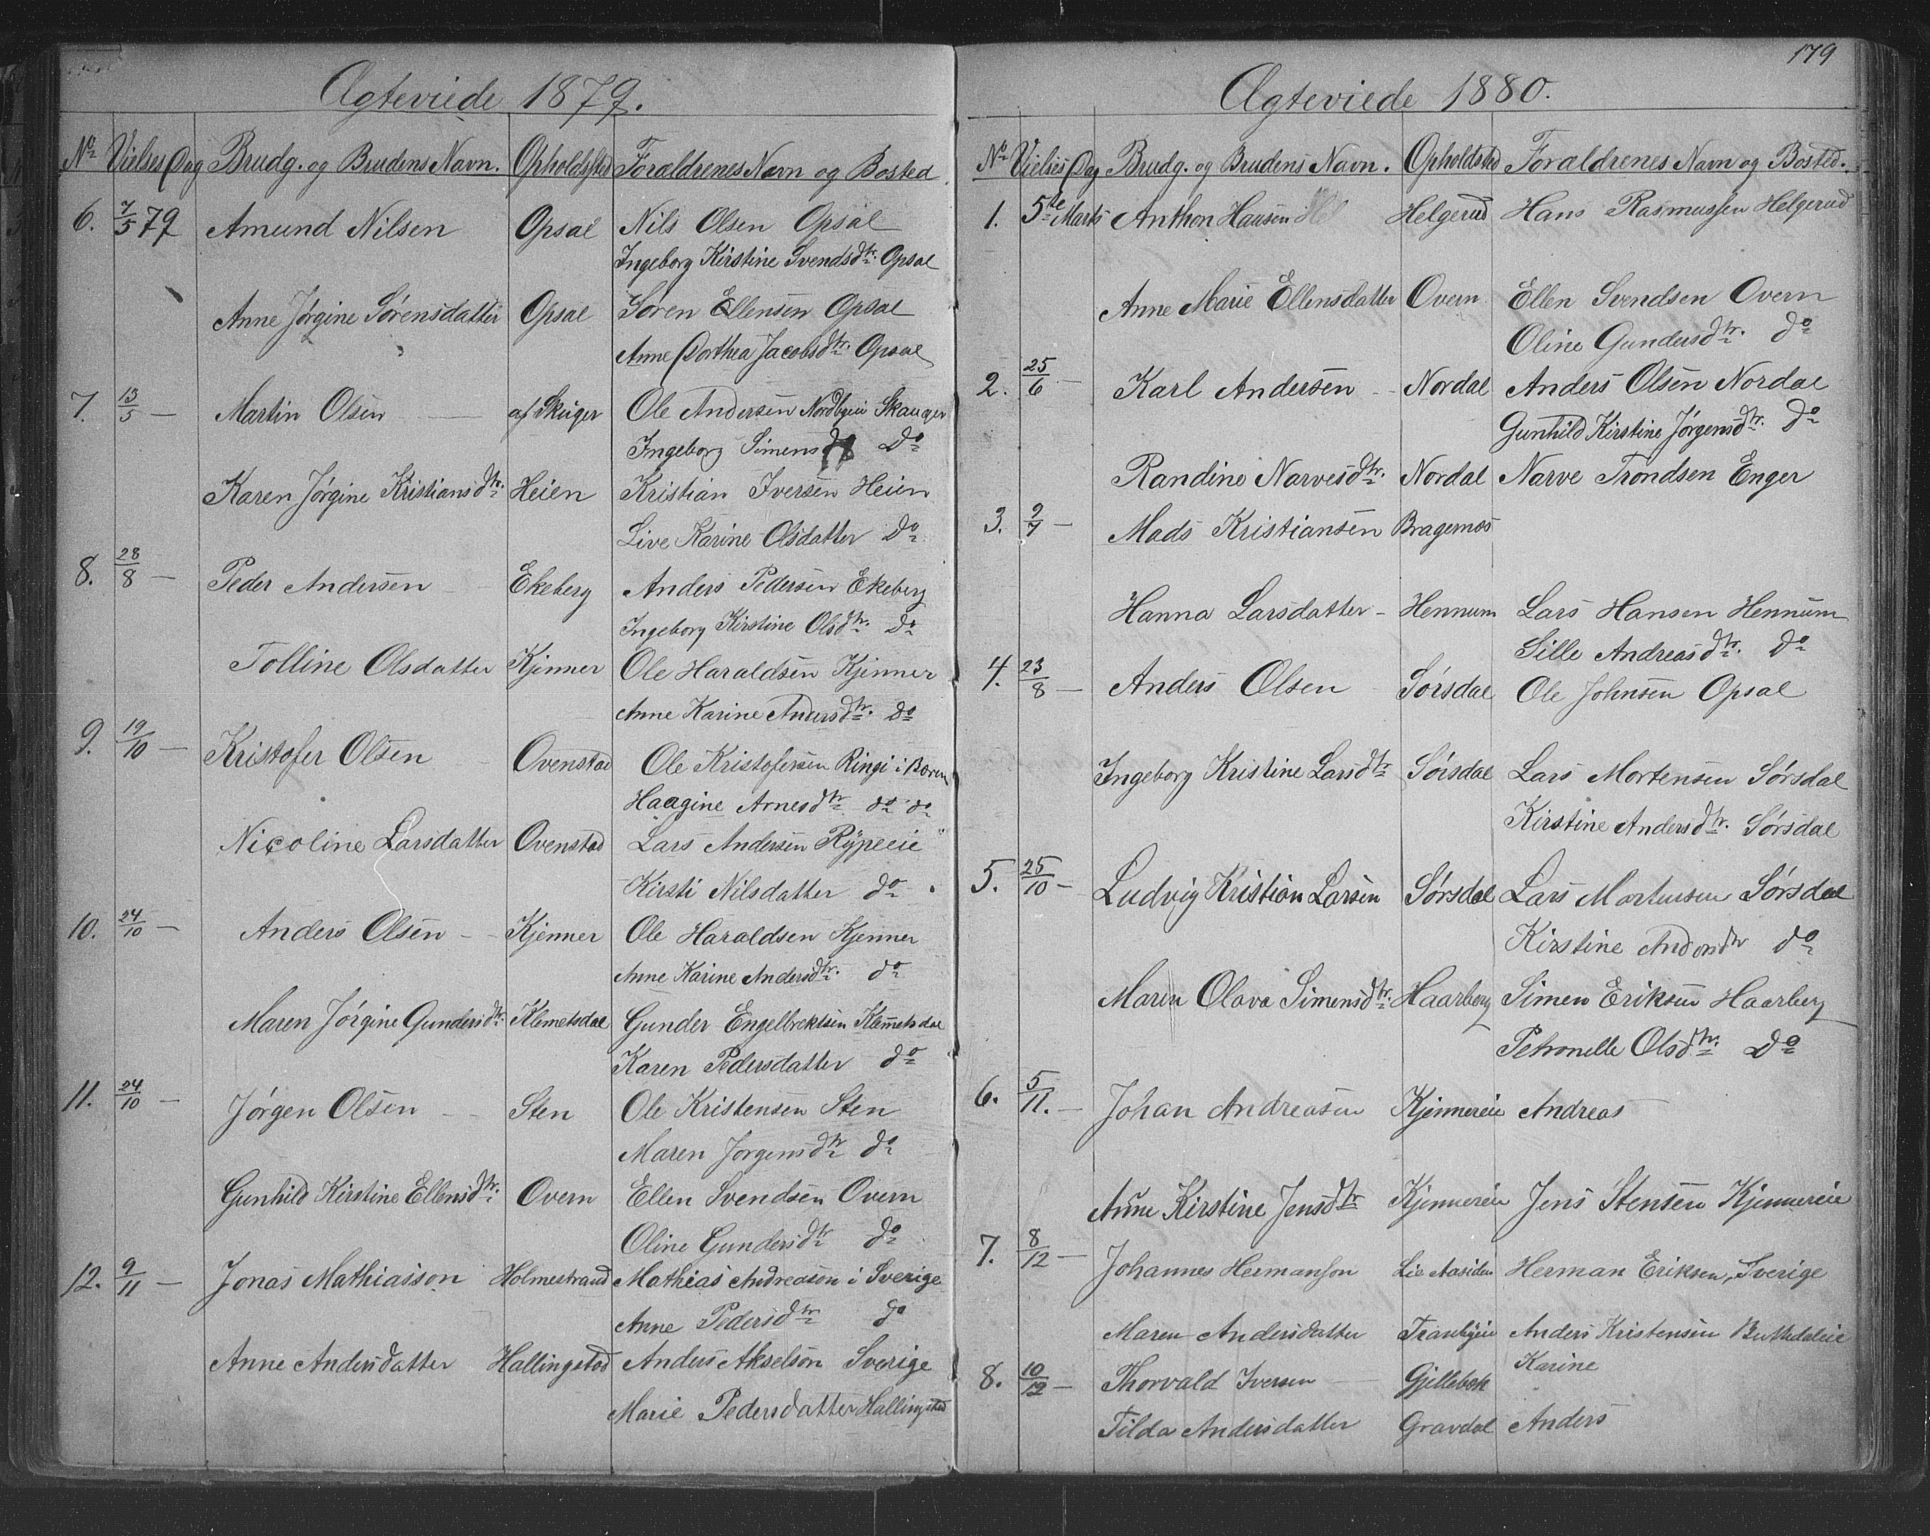 Ægteviede 1879.
No Vielses Dag Brudg. og Brudens Navn. Opholdssted Forældrenes Navn og Bosted
6. 7/5 79 Amund Nilsen Opsal Nils Olsen Opsal
Ingeborg Kirstine Svendsdtr. Opsal
Anne Jørgine Sørensdatter Opsal Søren Ellensen Opsal
Anne Dorthea Jacobsdtr. Opsal
7. 13/5 — Martin Olsen af Skuger Ole Andersen Nordbyeie Skauger
Ingeborg Simensd Do
Karen Jørgine Kristiansdtr. Heien Kristian Iversen Heien
Live Karine Olsdatter Do
8. 28/8 — Peder Andersen Ekeberg Anders Pedersen Ekeberg
Ingeborg Kirstine Olsdtr. Do
Tolline Olsdatter Kjenner Ole Haraldsen Kjenner
Anne Karine Andersdtr. do
9. 19/10 — Kristofer Olsen Ovenstad Ole Kristofersen Ringi i Boren
Haagine Arnesdtr do do
Nicoline Larsdatter Ovenstad Lars Andersen Rypeeie
Kirsti Nilsdatter do
10. 24/10 — Anders Olsen - Kjenner Ole Haraldsen Kjenner
Anne Karine Andersdtr. do
Maren Jørgine Gundersdtr. Klemetsdal Gunder Engelbrektsen Klemetsdal
Karen Pedersdatter do
11. 24/10 — Jørgen Olsen Sten Ole Kristensen Sten
Maren Jørgensdtr do
Gunhild Kirstine Ellensdtr. Overn Ellen Svendsen Overn
Oline Gundersdtr do
12. 9/11 — Jonas Mathiasson Holmestrand Mathias Andreason i Sverige
Anne Pedersdtr do
Anne Andersdatter Hallingstad Anders Akselson Sverige
Marie Pedersdatter Hallingstad
179
Ægteviede 1880.
No Vielses Dag Brudg. og Brudens Navn. Opholdsted Forældrenes Navn og Bosted.
1. 5te Marts Anthon Hansen Hel Helgerud Hans Rasmussen Helgerud
Anne Marie Ellensdatter Overn Ellen Svendsen Overn
Oline Gundersdtr. do
2. 25/6 — Karl Andersen - Nordal Anders Olsen Nordal
Gunhild Kirstine Jørgensdtr. do
Randine Narvesdtr. Nordal Narve Trondsen Enger
3. 9/7 — Mads Kristiansen Bragernes
Hanna Larsdatter - Hennum Lars Hansen Hennum
Sille Andreasdtr. do
4. 23/8 — Anders Olsen Sørsdal Ole Johnsen Opsal
Ingeborg Kristine Larsdtr Sørsdal Lars Mortensen Sørsdal
Kirstine Andersdtr. Sørsdal
5. 25/10 — Ludvig Kristian Larsen Sørsdal Lars Mortensen Sørsdal
Kirstine Andersdtr do
Maren Olava Simensdtr. Haarberg Simen Eriksen Haarberg
Petronelle Olsdtr. Do
6. 5/11. — Johan Andreasen Kjennereie Andreas
Anne Kirstine Jensdtr Kjennereie Jens Stensen Kjennereie
7. 8/12 — Johannes Hermansson Lie Aasiden Herman Eriksen, Sverige
Maren Andersdatter Tranbyeie Anders Kristensen Buttedaleie
Karine
8. 10/12 — Thorvald Iversen Gjellebek
Tilda Andersdatter Gravdal Anders